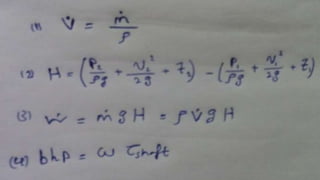 (1) V̇ = ṁ/ρ
(2) H = (P₂/ρg + V₂²/2g + Z₂) - (P₁/ρg + V₁²/2g + Z₁)
(3) ẇ = ṁgH = ρV̇gH
(4) bhp = ω τshaft